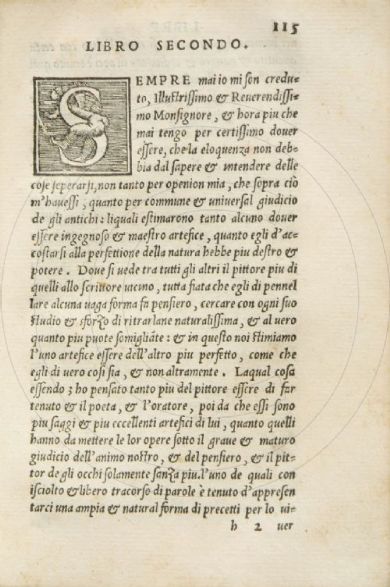 115
LIBRO SECONDO.
SEMPRE mai io mi son credu-
to, Illustrissimo & Reverendissi-
mo Monsignore, & hora piu che
mai tengo per certissimo dover
essere, che la eloquenza non deb-
bia dal sapere & intendere delle
cose seperarsi, non tanto per openion mia, che sopra ciò
m'havessi, quanto per commune & universal giudicio
de gli antichi: liquali estimarono tanto alcuno dover
essere ingegnoso & maestro artefice, quanto egli d'ac-
costarsi alla perfettione della natura hebbe piu destro &
potere. Dove si vede tra tutti gli altri il pittore piu di
quelli allo scrittore vicino, tutta fiata che egli di pennel
lare alcuna vaga forma fa pensiero, cercare con ogni suo
studio & sforzo di ritrarlane naturalissima, & al vero
quanto piu puote somigliate: & in questo noi stimiamo
l'uno artefice essere dell'altro piu perfetto, come che
egli di vero cosi sia, & non altramente. Laqual cosa
essendo; ho pensato tanto piu del pittore essere di far
tenuto & il poeta, & l'oratore, poi da che essi sono
piu saggi & piu eccellenti artefici di lui, quanto quelli
hanno da mettere le lor opere sotto il grave & maturo
giudicio dell'animo nostro, & del pensiero, & il pit-
tor de gli occhi solamente sanza piu. l'uno de quali con
isciolto & libero tracorso di parole è tenuto d'appresen
tarci una ampia & natural forma di precetti per lo vi-
h 2 ver